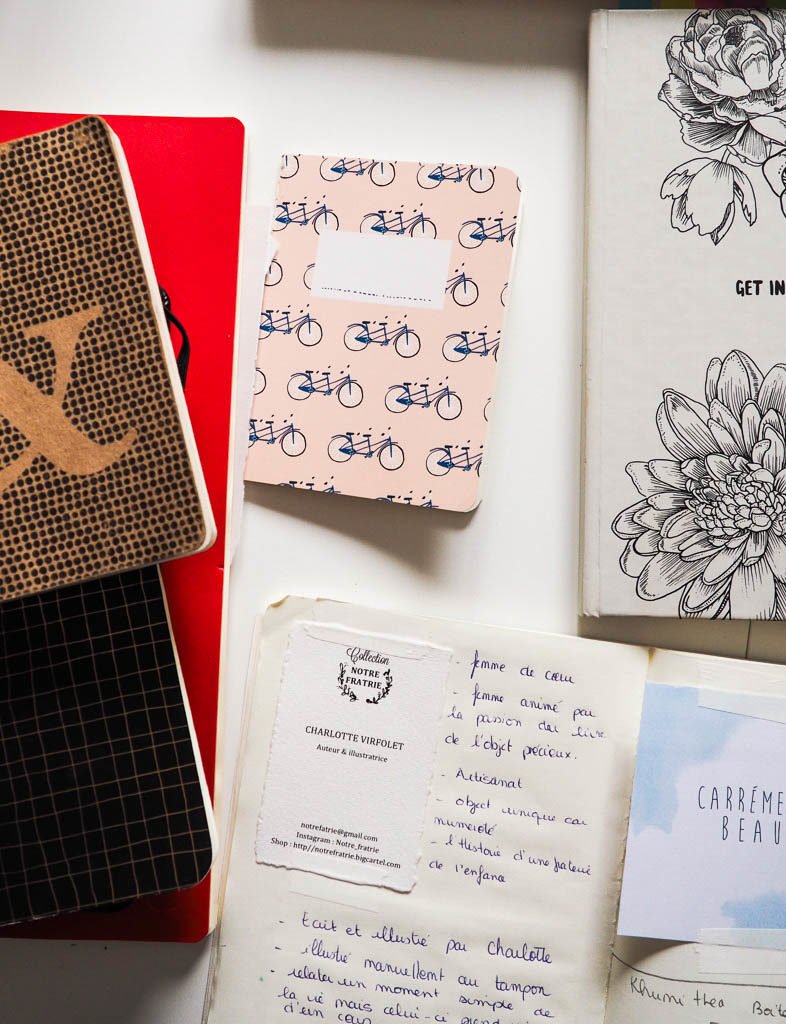 &
GET IN
Collection
NOTRE
FRATRIE
CHARLOTTE VIRFOLET
Auteur & illustratrice
notrefatrie@gmail.com
Instagram : Notre_fratrie
Shop : http//notrefratrie.bigcartel.com
- femme de cœur
- femme animé par
la passion du livre
de l'objet précieux.
- Artisanat
- objet unique car
numeroté
- l'Histoire d'une
de l'enfance
- Ecrit et illustré par Charlotte
- illustré manuellemt au tampon
- relater un moment simple de
la vie mais celui-ci
d'un cœur
CARRÉME
BEAU
Khumi thea Boîte